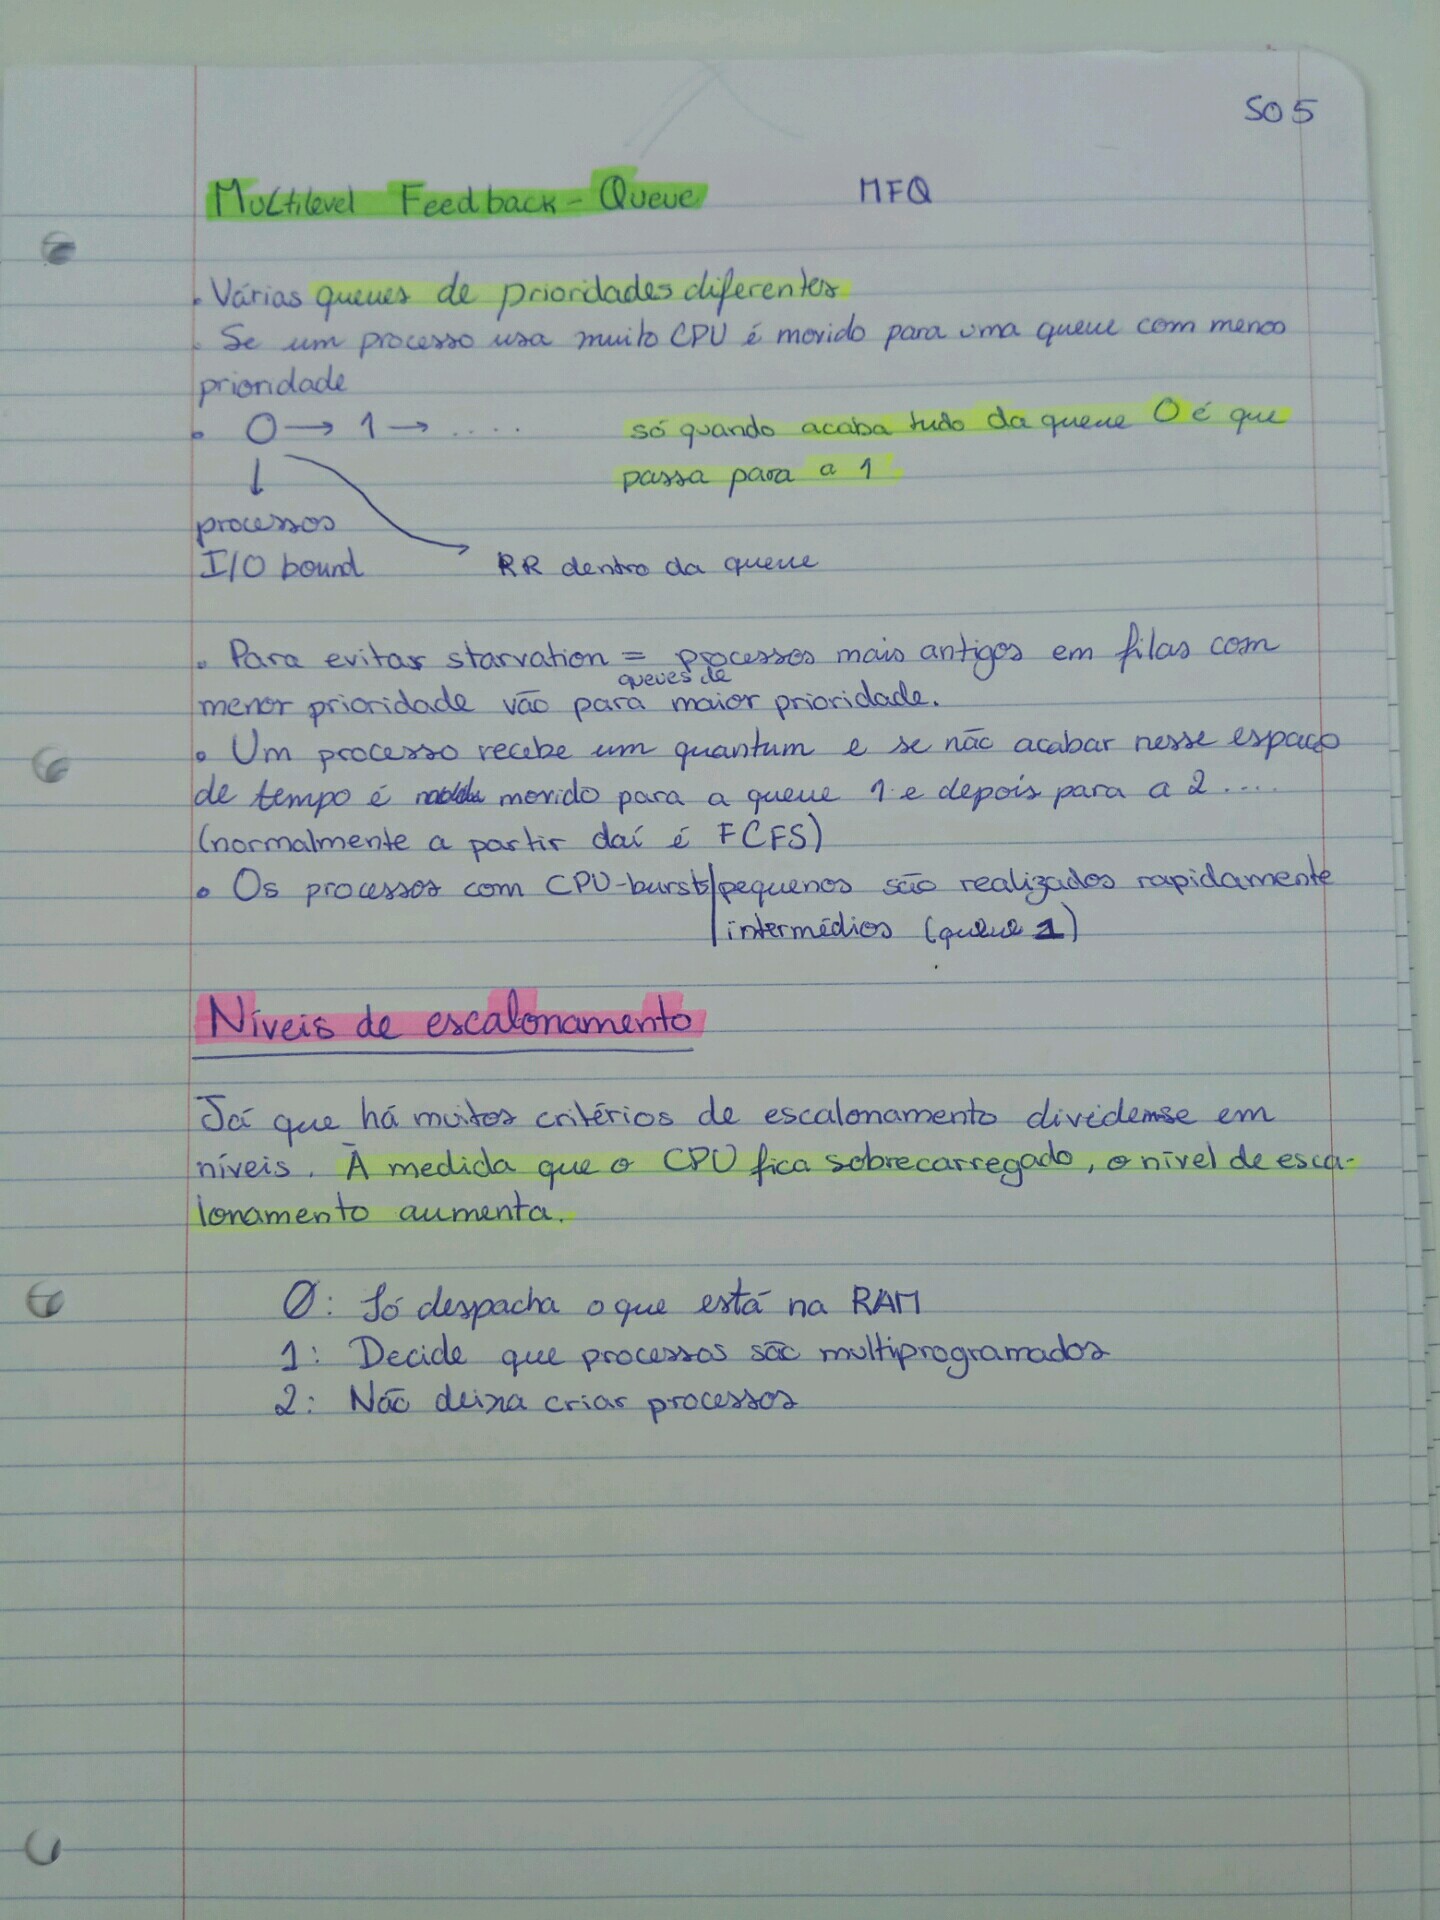 SO 5
Multilevel Feedback-Queue MFQ
. Várias queues de prioridades diferentes
. Se um processo usa muito CPU é movido para uma queue com menos
prioridade
• 0 → 1 → ....
só quando acaba tudo da queue 0 é que
passa para a 1
processos
I/O bound
RR dentro da queue
. Para evitar starvation = processos mais antigos em filas com
queues de
menor prioridade vão para maior prioridade.
• Um processo recebe um quantum e se não acabar nesse espaço
de tempo é movido para a queue 1 e depois para a 2 ....
(normalmente a partir daí é FCFS)
• Os processos com CPU-bursts pequenos são realizados rapidamente
intermédios (queue 1)
Níveis de escalonamento
Já que há muitos critérios de escalonamento dividem-se em
níveis. À medida que o CPU fica sobrecarregado, o nível de esca-
lonamento aumenta.
0: Só despacha o que está na RAM
1: Decide que processos são multiprogramados
2: Não deixa criar processos